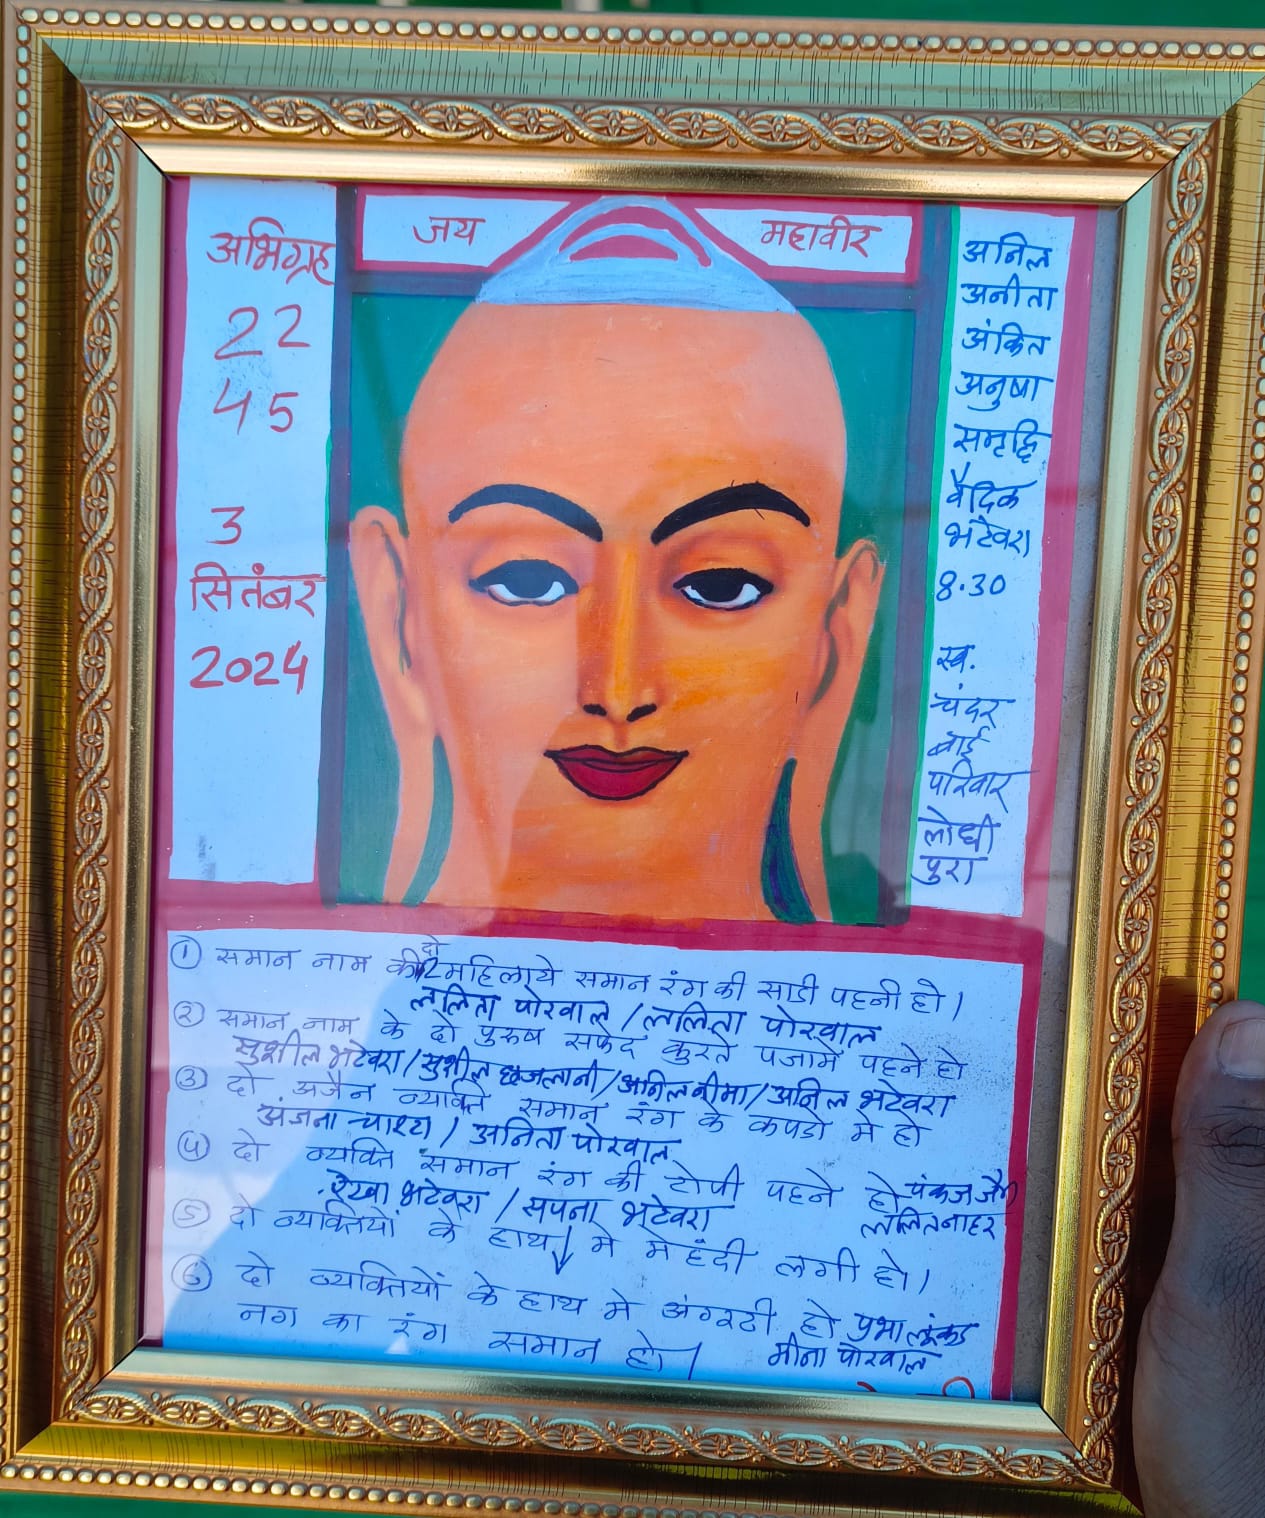 जय महावीर
अभिग्रह
22
45
3
सितंबर
2024
अनिल
अनीता
अंकित
अनुषा
समृद्धि
वैदिक
भटेवरा
8.30
स्व.
चंदर
बाई
परिवार
लोधी
पुरा
① समान नाम की दो महिलाये समान रंग की साडी पहनी हो।
ललिता पोरवाल / ललिता पोरवाल
② समान नाम के दो पुरुष सफेद कुरते पजामे पहने हो
सुशील भटेवरा / सुशील छजलानी / अनिल भीमा / अनिल भटेवरा
③ दो अजैन व्यक्ति समान रंग के कपडो मे हो
अंजना / अनिता पोरवाल
④ दो व्यक्ति समान रंग की टोपी पहने हो पंकज जैन
ललित नाहर
रेखा भटेवरा / सपना भटेवरा
⑤ दो व्यक्तियों के हाथ मे मेहंदी लगी हो।
⑥ दो व्यक्तियों के हाथ मे अंगूठी हो प्रभा
नग का रंग समान हो। मीना पोरवाल